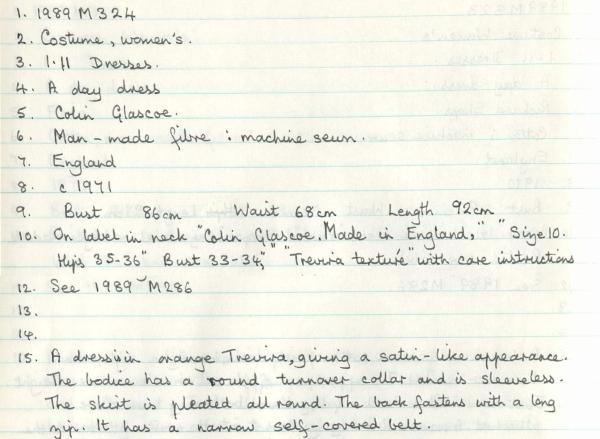 1. 1989 M 324
2. Costume, women's.
3. 1.11 Dresses.
4. A day dress
5. Colin Glascoe.
6. Man-made fibre : machine sewn.
7. England
8. c 1971
9. Bust 86cm Waist 68cm Length 92cm
10. On label in neck "Colin Glascoe. Made in England," "Size 10.
Hips 35-36" Bust 33-34", "Trevira texture" with care instructions
12. See 1989 M286
13.
14.
15. A dress in orange Trevira, giving a satin-like appearance.
The bodice has a round turnover collar and is sleeveless.
The skirt is pleated all round. The back fastens with a long
zip. It has a narrow self-covered belt.